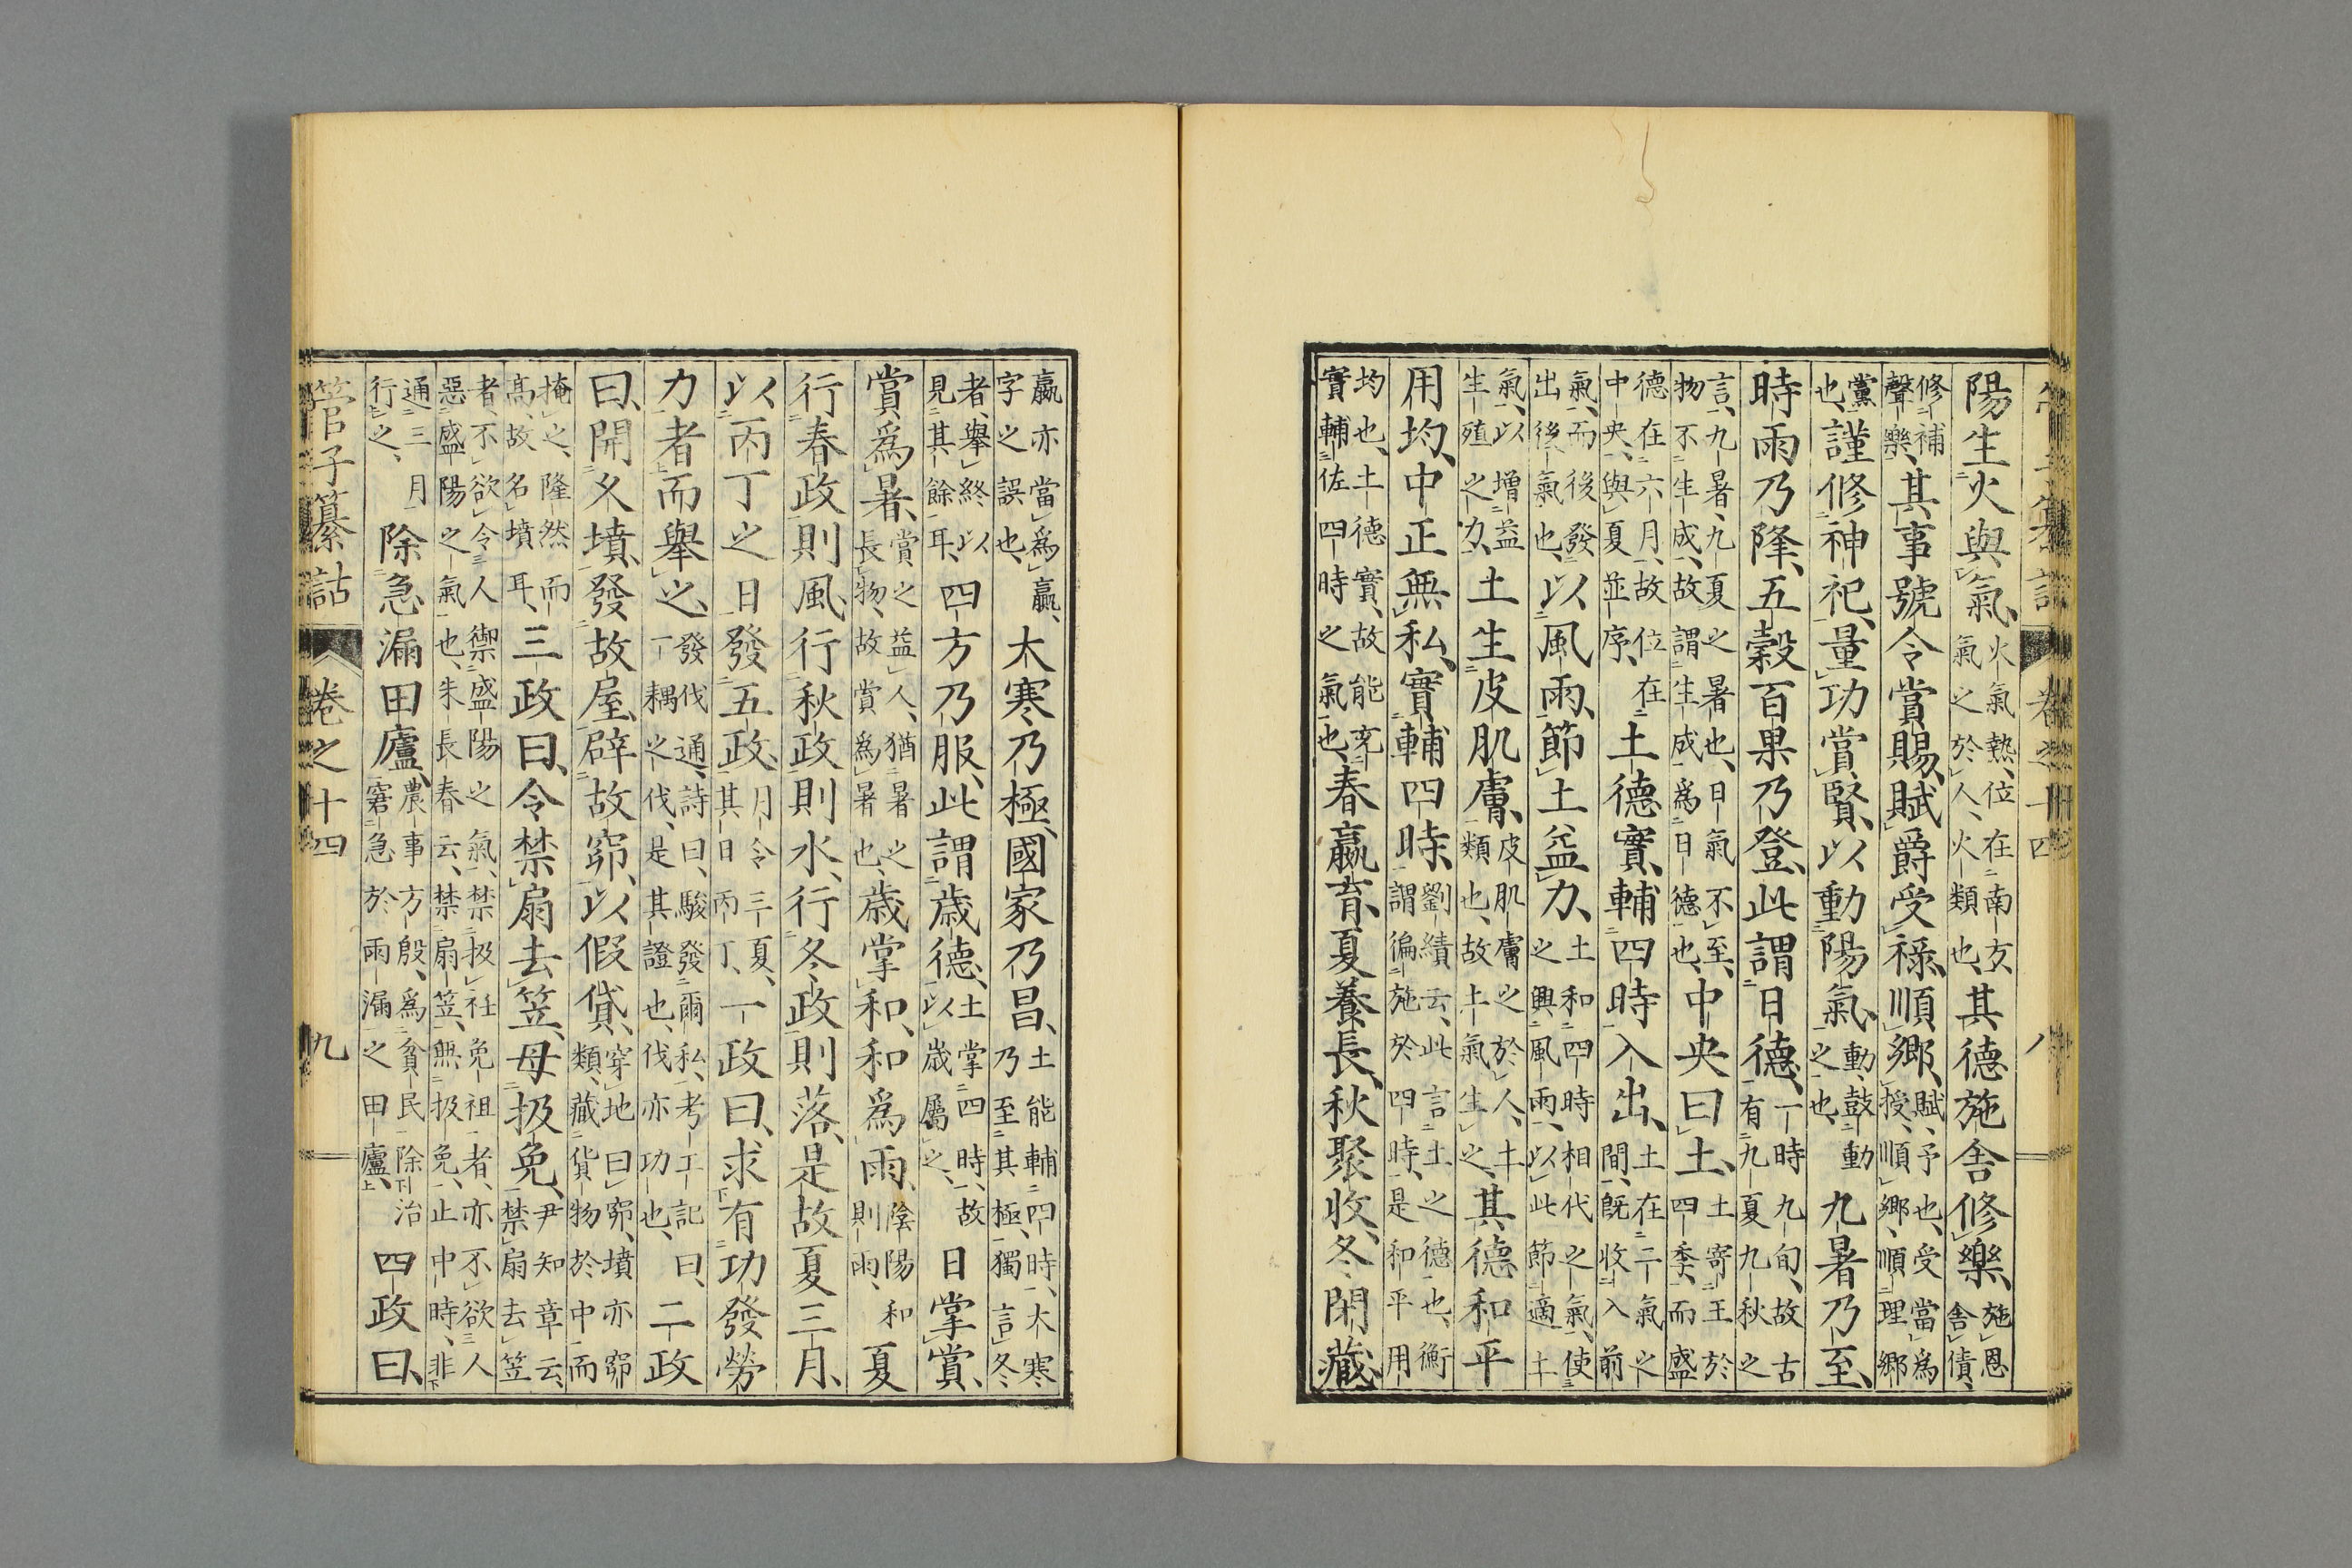 管子纂詁 卷之十四 八
陽生火與氣、火氣熱、位在南方、氣之於人、火類也、其德施舍修樂、施恩舍債、
修補聲樂、其事號令賞賜、賦爵受祿、順鄉、賦、予也、受當爲授、順鄉、順理鄉
黨也、謹修神祀、量功賞賢、以動陽氣、動、鼓動之也、九暑乃至、
時雨乃降、五穀百果乃登、此謂日德、一時九旬、故古有九夏九秋之
言、九暑、九夏之暑也、日氣不至、物不生成、故謂生成爲日德也、中央曰土、土寄王於四季、而盛
德在六月、故位在中央、與夏並序、土德實輔四時入出、土在二氣之間、既收入前
氣、而後發出後氣也、以風雨、節土益力、土和四時相代之氣、使之興風雨、以此節適土
氣、以增益生殖之力、土生皮肌膚、皮肌膚之於人、土類也、故土氣生之、其德和平
用均、中正無私、實輔四時、劉績云、此言土之德也、衡謂徧施於四時、是和平用
均也、土德實、故能充實輔佐四時之氣也、春嬴育、夏養長、秋聚收、冬閉藏、
嬴亦當爲贏、字之誤也、大寒乃極、國家乃昌、土能輔四時、大寒乃至其極、獨言冬
者、舉終以見其餘耳、四方乃服、此謂歲德、土掌四時、故以歲屬之、日掌賞、
賞爲暑、賞之益人、猶暑之長物、故賞爲暑也、歲掌和、和爲雨、陰陽和則雨、夏
行春政則風、行秋政則水、行冬政則落、是故夏三月、
以丙丁之日發五政、月令三夏、其日丙丁、一政曰、求有功發勞
力者而舉之、發伐通、詩曰、駿發爾私、考工記曰、一耦之伐、是其證也、伐亦功也、二政
曰、開久墳、發故屋、辟故窌、以假貸、穿地曰窌、墳亦窌類、藏貨物於中而
掩之、隆然而高、故名墳耳、三政曰、令禁扇去笠、毋扱免、尹知章云、禁扇去笠
者、不欲令人禦盛陽之氣、禁扱衽免袒者、亦不欲人惡盛陽之氣也、朱長春云、禁扇笠、無扱免、止中時、非
通三月行之、除急漏田廬、農事方殷、爲貧民除治窘急於雨漏之田廬、四政曰、
管子纂詁 卷之十四 九